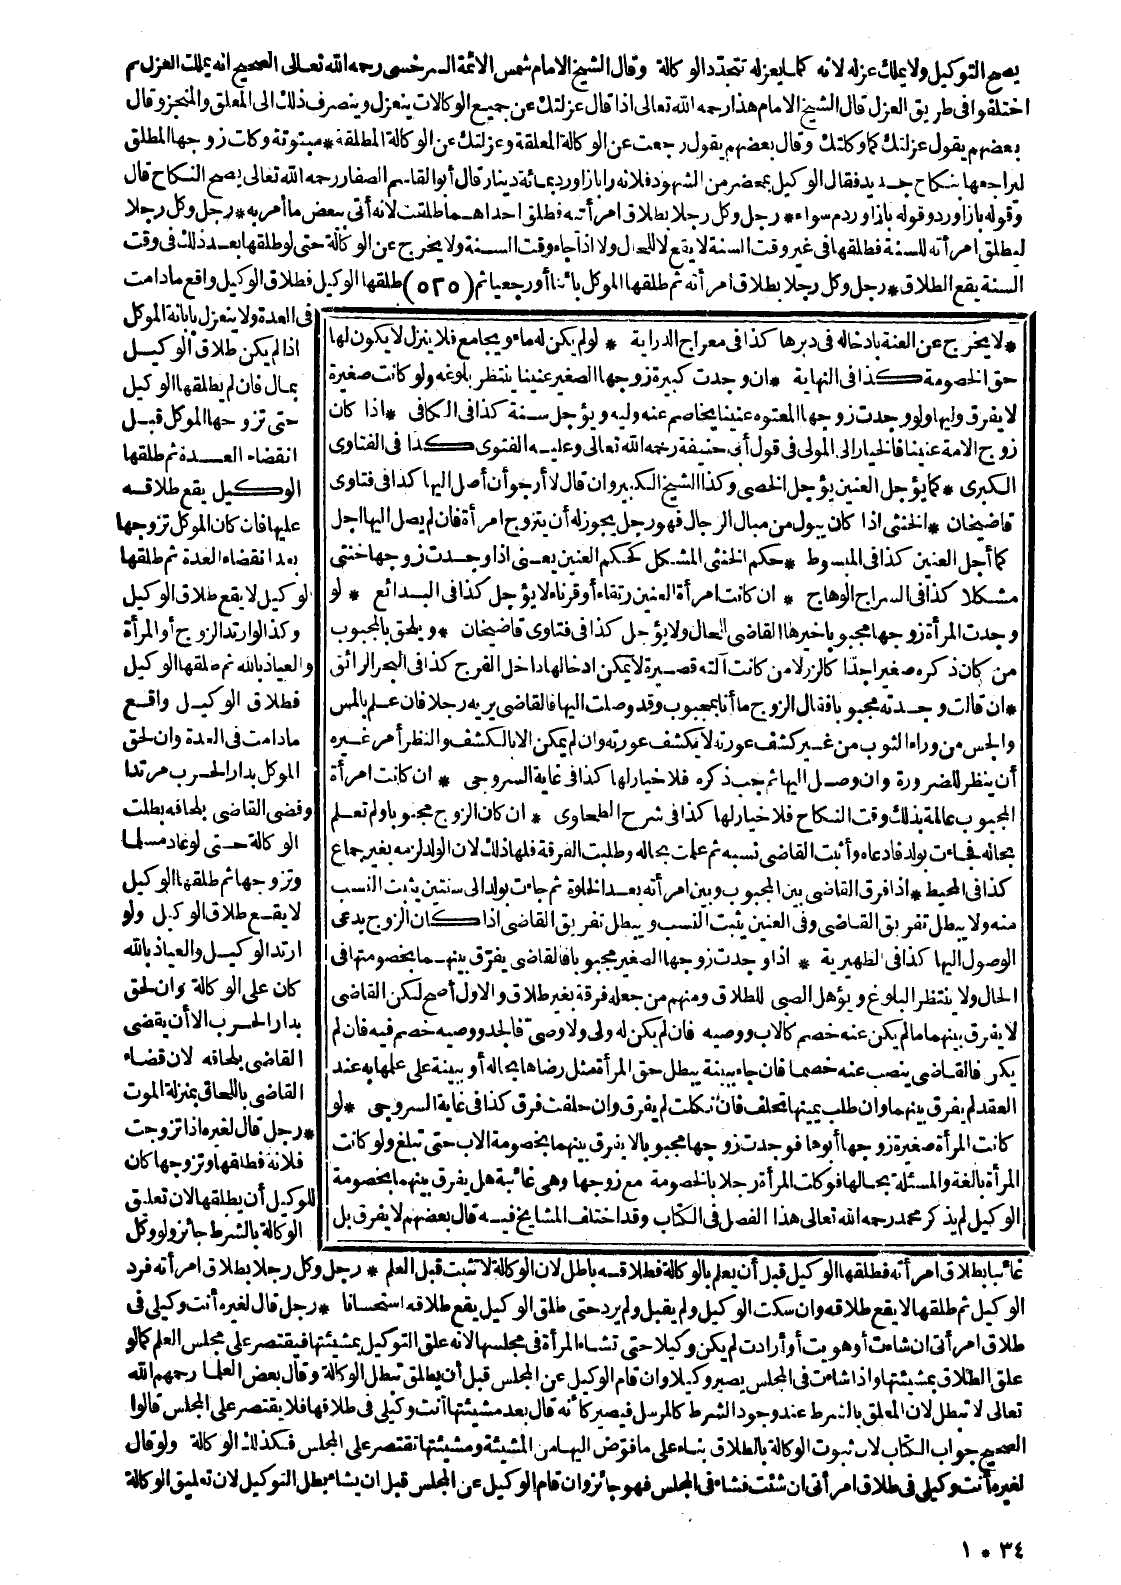 يصح التوكيل ولا يملك عزله لانه كلما يعزله تتجدد الوكالة وقال الشيخ الامام شمس الائمة السرخسي رحمه الله تعالى الصحيح انه يملك العزل ثم
اختلفوا في طريق العزل قال الشيخ الامام هذا رحمه الله تعالى اذا قال عزلتك عن جميع الوكالات ينعزل وينصرف ذلك الى المعلق والمنجز وقال
بعضهم يقول عزلتك كما وكلتك وقال بعضهم يقول رجعت عن الوكالة المعلقة وعزلتك عن الوكالة المطلقة * مبتوتة وكلت زوجها المطلق
ليراجعها بنكاح جديد فقال الوكيل بمحضر من الشهود فلانه را بازاوردم بمائة دينار قال أبو القاسم الصفار رحمه الله تعالى يصح النكاح قال
وقوله بازاورد وقوله بازاوردم سواء * رجل وكل رجلا بطلاق امرأتيه فطلق احداهما طلقت لانه أتى ببعض ما أمر به * رجل وكل رجلا
ليطلق امرأته للسنة فطلقها في غير وقت السنة لا يقع لا للحال ولا اذا جاء وقت السنة ولا يخرج عن الوكالة حتى لو طلقها بعد ذلك في وقت
السنة يقع الطلاق * رجل وكل رجلا بطلاق امرأته ثم طلقها الموكل بائنا أو رجعيا ثم (٥٢٥) طلقها الوكيل فطلاق الوكيل واقع مادامت
في العدة ولا ينعزل بابانة الموكل
اذا لم يكن طلاق الوكيل
بمال فان لم يطلقها الوكيل
حتى تزوجها الموكل قبل
انقضاء العدة ثم طلقها
الوكيل يقع طلاقه
عليها فان كان الموكل تزوجها
بعد انقضاء العدة ثم طلقها
لوكيل لا يقع طلاق الوكيل
وكذا لو ارتد الزوج أو المرأة
والعياذ بالله ثم طلقها الوكيل
فطلاق الوكيل واقع
مادامت في العدة وان لحق
الموكل بدار الحرب مرتدا
وقضى القاضي بلحاقه بطلت
الوكالة حتى لو عاد مسلما
وتزوجها ثم طلقها الوكيل
لا يقع طلاق الوكيل ولو
ارتد الوكيل والعياذ بالله
كان على الوكالة وان لحق
بدار الحرب الا أن يقضي
القاضي بلحاقه لان قضاء
القاضي باللحاق بمنزلة الموت
* رجل قال لغيره اذا تزوجت
فلانة فطلقها وتزوجها كان
للوكيل أن يطلقها لان تعليق
الوكالة بالشرط جائز ولو وكل
* لا يخرج عن العنة بادخاله في دبرها كذا في معراج الدراية * لو لم يكن له ماء ويجامع فلا ينزل لا يكون لها
حق الخصومة كذا في النهاية * ان وجدت كبيرة زوجها الصغير عنينا ينتظر بلوغه ولو كانت صغيرة
لا يفرق وليها ولو وجدت زوجها المعتوه عنينا يخاصم عنه وليه ويؤجل سنة كذا في الكافي * اذا كان
زوج الامة عنينا فالخيار الى المولى في قول أبي حنيفة رحمه الله تعالى وعليه الفتوى كذا في الفتاوى
الكبرى * كما يؤجل العنين يؤجل الخصي وكذا الشيخ الكبير وان قال لا أرجو أن أصل اليها كذا في فتاوى
قاضيخان * الخنثى اذا كان يبول من مبال الرجال فهو رجل يجوز له أن يتزوج امرأة فان لم يصل اليها أجل
كما أجل العنين كذا في المبسوط * حكم الخنثى المشكل كحكم العنين يعني اذا وجدت زوجها خنثى
مشكلا كذا في السراج الوهاج * ان كانت امرأة العنين رتقاء أو قرناء لا يؤجل كذا في البدائع * لو
وجدت المرأة زوجها مجبوبا خيرها القاضي للحال ولا يؤجل كذا في فتاوى قاضيخان * ويلحق بالمجبوب
من كان ذكره صغيرا جدا كالزر لا من كانت آلته قصيرة لا يمكن ادخالها داخل الفرج كذا في البحر الرائق
* ان قالت وجدته مجبوبا فقال الزوج ما أنا بمجبوب وقد وصلت اليها فالقاضي يريه رجلا فان علم بالمس
والجس من وراء الثوب من غير كشف عورته لا يكشف عورته وان لم يمكن الا بالكشف والنظر أمر غيره
أن ينظر للضرورة وان وصل اليها ثم جب ذكره فلا خيار لها كذا في غاية السروجي * ان كانت امرأة
المجبوب عالمة بذلك وقت النكاح فلا خيار لها كذا في شرح الطحاوي * ان كان الزوج مجبوبا ولم تعلم
بحاله فجاءت بولد فادعاه وأثبت القاضي نسبه ثم علمت بحاله وطلبت الفرقة فلها ذلك لان الولد لزمه بغير جماع
كذا في المحيط * اذا فرق القاضي بين المجبوب وبين امرأته بعد الخلوة ثم جاءت بولد الى سنتين يثبت النسب
منه ولا يبطل تفريق القاضي وفي العنين يثبت النسب ويبطل تفريق القاضي اذا كان الزوج يدعي
الوصول اليها كذا في الظهيرية * اذا وجدت زوجها الصغير مجبوبا فالقاضي يفرق بينهما بخصومتها في
الحال ولا ينتظر البلوغ ويؤهل الصبي للطلاق ومنهم من جعله فرقة بغير طلاق والاول أصح لكن القاضي
لا يفرق بينهما ما لم يكن عنه خصم كالاب ووصيه فان لم يكن له ولي ولا وصي فالجد ووصيه خصم فيه فان لم
يكن فالقاضي ينصب عنه خصما فان جاء ببينة يبطل حق المرأة مثل رضاها بحاله أو ببينة على علمها به عند
العقد لم يفرق بينهما وان طلب يمينها تحلف فان نكلت لم يفرق وان حلفت فرق كذا في غاية السروجي * لو
كانت المرأة صغيرة زوجها أبوها فوجدت زوجها مجبوبا لا يفرق بينهما بخصومة الاب حتى تبلغ ولو كانت
المرأة بالغة والمسئلة بحالها فوكلت المرأة رجلا بالخصومة مع زوجها وهي غائبة هل يفرق بينهما بخصومة
الوكيل لم يذكر محمد رحمه الله تعالى هذا الفصل في الكتاب وقد اختلف المشايخ فيه قال بعضهم لا يفرق بل
غائبا بطلاق امرأته فطلقها الوكيل قبل أن يعلم بالوكالة فطلاقه باطل لان الوكالة لا تثبت قبل العلم * رجل وكل رجلا بطلاق امرأته فرد
الوكيل ثم طلقها لا يقع طلاقه وان سكت الوكيل ولم يقبل ولم يرد حتى طلق الوكيل يقع طلاقه استحسانا * رجل قال لغيره أنت وكيلي في
طلاق امرأتي ان شاءت أو هويت أو أرادت لم يكن وكيلا حتى تشاء المرأة في مجلسها لانه علق التوكيل بمشيئتها فيقتصر على مجلس العلم كما لو
علق الطلاق بمشيئتها واذا شاءت في المجلس يصير وكيلا وان قام الوكيل عن المجلس قبل أن يطلق تبطل الوكالة وقال بعض العلما رحمهم الله
تعالى لا تبطل لان المعلق بالشرط عند وجود الشرط كالمرسل فيصير كأنه قال بعد مشيئتها أنت وكيلي في طلاقها فلا يقتصر على المجلس قالوا
الصحيح جواب الكتاب لان ثبوت الوكالة بالطلاق بناء على ما فوض اليها من المشيئة ومشيئتها تقتصر على المجلس فكذلك الوكالة ولو قال
لغيره أنت وكيلي في طلاق امرأتي ان شئت فشاء في المجلس فهو جائز وان قام الوكيل عن المجلس قبل ان يشاء بطل التوكيل لان تعليق الوكالة
١٠٣٤